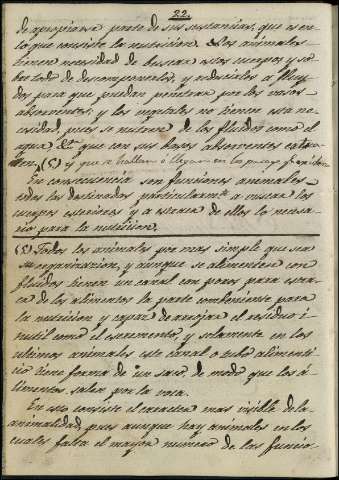 22.
de apropiarse parte de sus sustancias, que es en
lo que consiste la nutricion. Los animales
tienen necesidad de buscar estos cuerpos y so
bre todo de descomponerlos, y reducirlos a fluy
dos para que puedan penetrar por los vasos
absorventes; y los vegetales no tienen esta ne
cesidad, pues se nutren de los fluidos como el
agua &c.a que con sus bases absorventes
(5) es que se hallan ó llegan en la
En consecuencia son funciones animales
todas las destinadas particularm.te a buscar los
cuerpos esteriores y a estraer de ellos lo necesa
rio para la nutricion.
(5) Todos los animales por mas simple que sea
su organizacion, y aunque se alimenten con
fluidos tienen un canal con poros para estra
er de los alimentos la parte combeniente para
la nutricion y capaz de arrojar el residuo i
nutil como el escremento, y solamente en los
ultimos animales este canal o tubo alimenti
cio tiene forma de un saco, de modo que los a
limentos salen por la voca.
En esto consiste el caracter mas visible de la
animalidad, pues aunque hay animales en los
cuales falta el mayor numero de las funcio